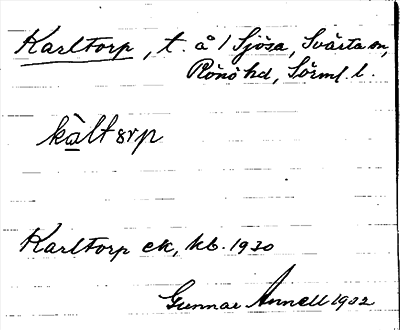 Karltorp, t. å 1 Sjösa, Svärta sn,
Rönö hd, Sörml. l.
kàltɤrp
Karltorp ek, kb. 1930
Gunnar Annell 1932